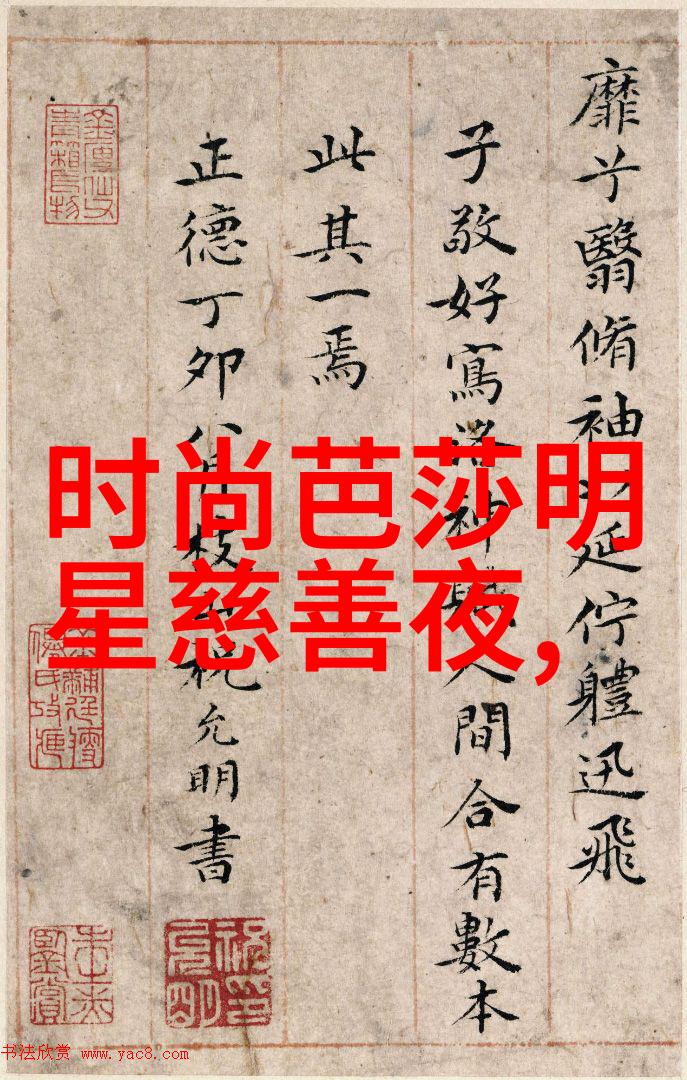 靡兮翳脩袖以延佇體迅飛
子敬好寫洛神賦人間合有數本
此其一焉
正德丁卯八月枝山祝允明書
时尚芭莎明
星慈善夜,
书法欣赏 www.yac8.com